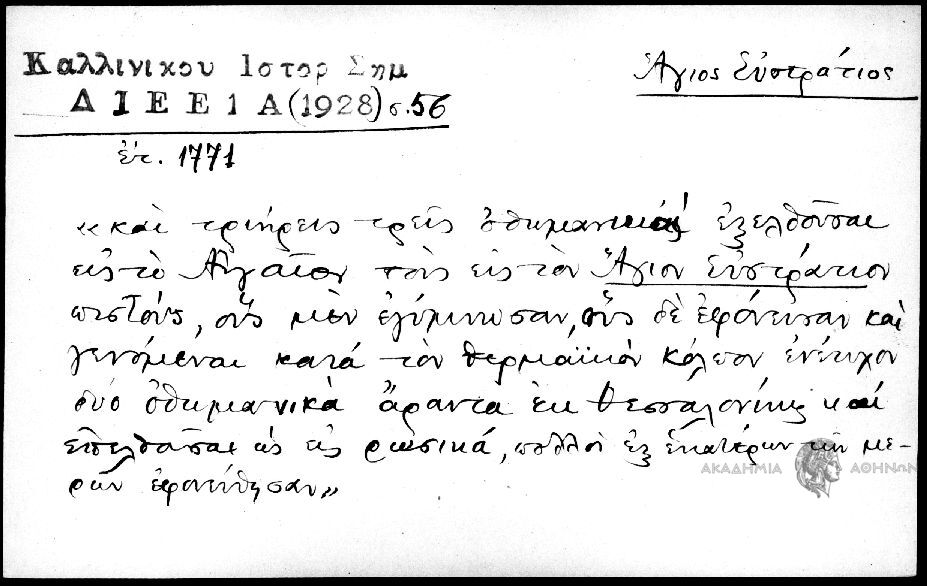 Καλλινικου Ιστορ Σημ
Ἅγιος Εὐστράτιος
ΔΙΕΕ ΙΑ (1928) σ. 56
ἐτ. 1771
«καὶ τριήρεις τρεῖς ὀθωμανικαί ἐξελθοῦσαι
εἰς τὸ Αἰγαῖον τοὺς εἰς τὸν Ἅγιον Εὐστράτιον
πιστούς, οὓς μὲν ἐγύμνωσαν, οὓς δὲ ἐφόνευσαν καὶ
γενόμεναι κατά τὸν θερμαϊκὸν κόλπον ἐνέτυχον
δύο ὀθωμανικὰ ἄραντα ἐκ Θεσσαλονίκης καί
ἐπελθοῦσαι ὡς εἰς ρωσικά, πολλοὶ ἐξ ἑκατέρων τῶν με-
ρῶν ἐφονεύθησαν»
ΑΚΑΔΗΜΙΑ ΑΘΗΝΩΝ